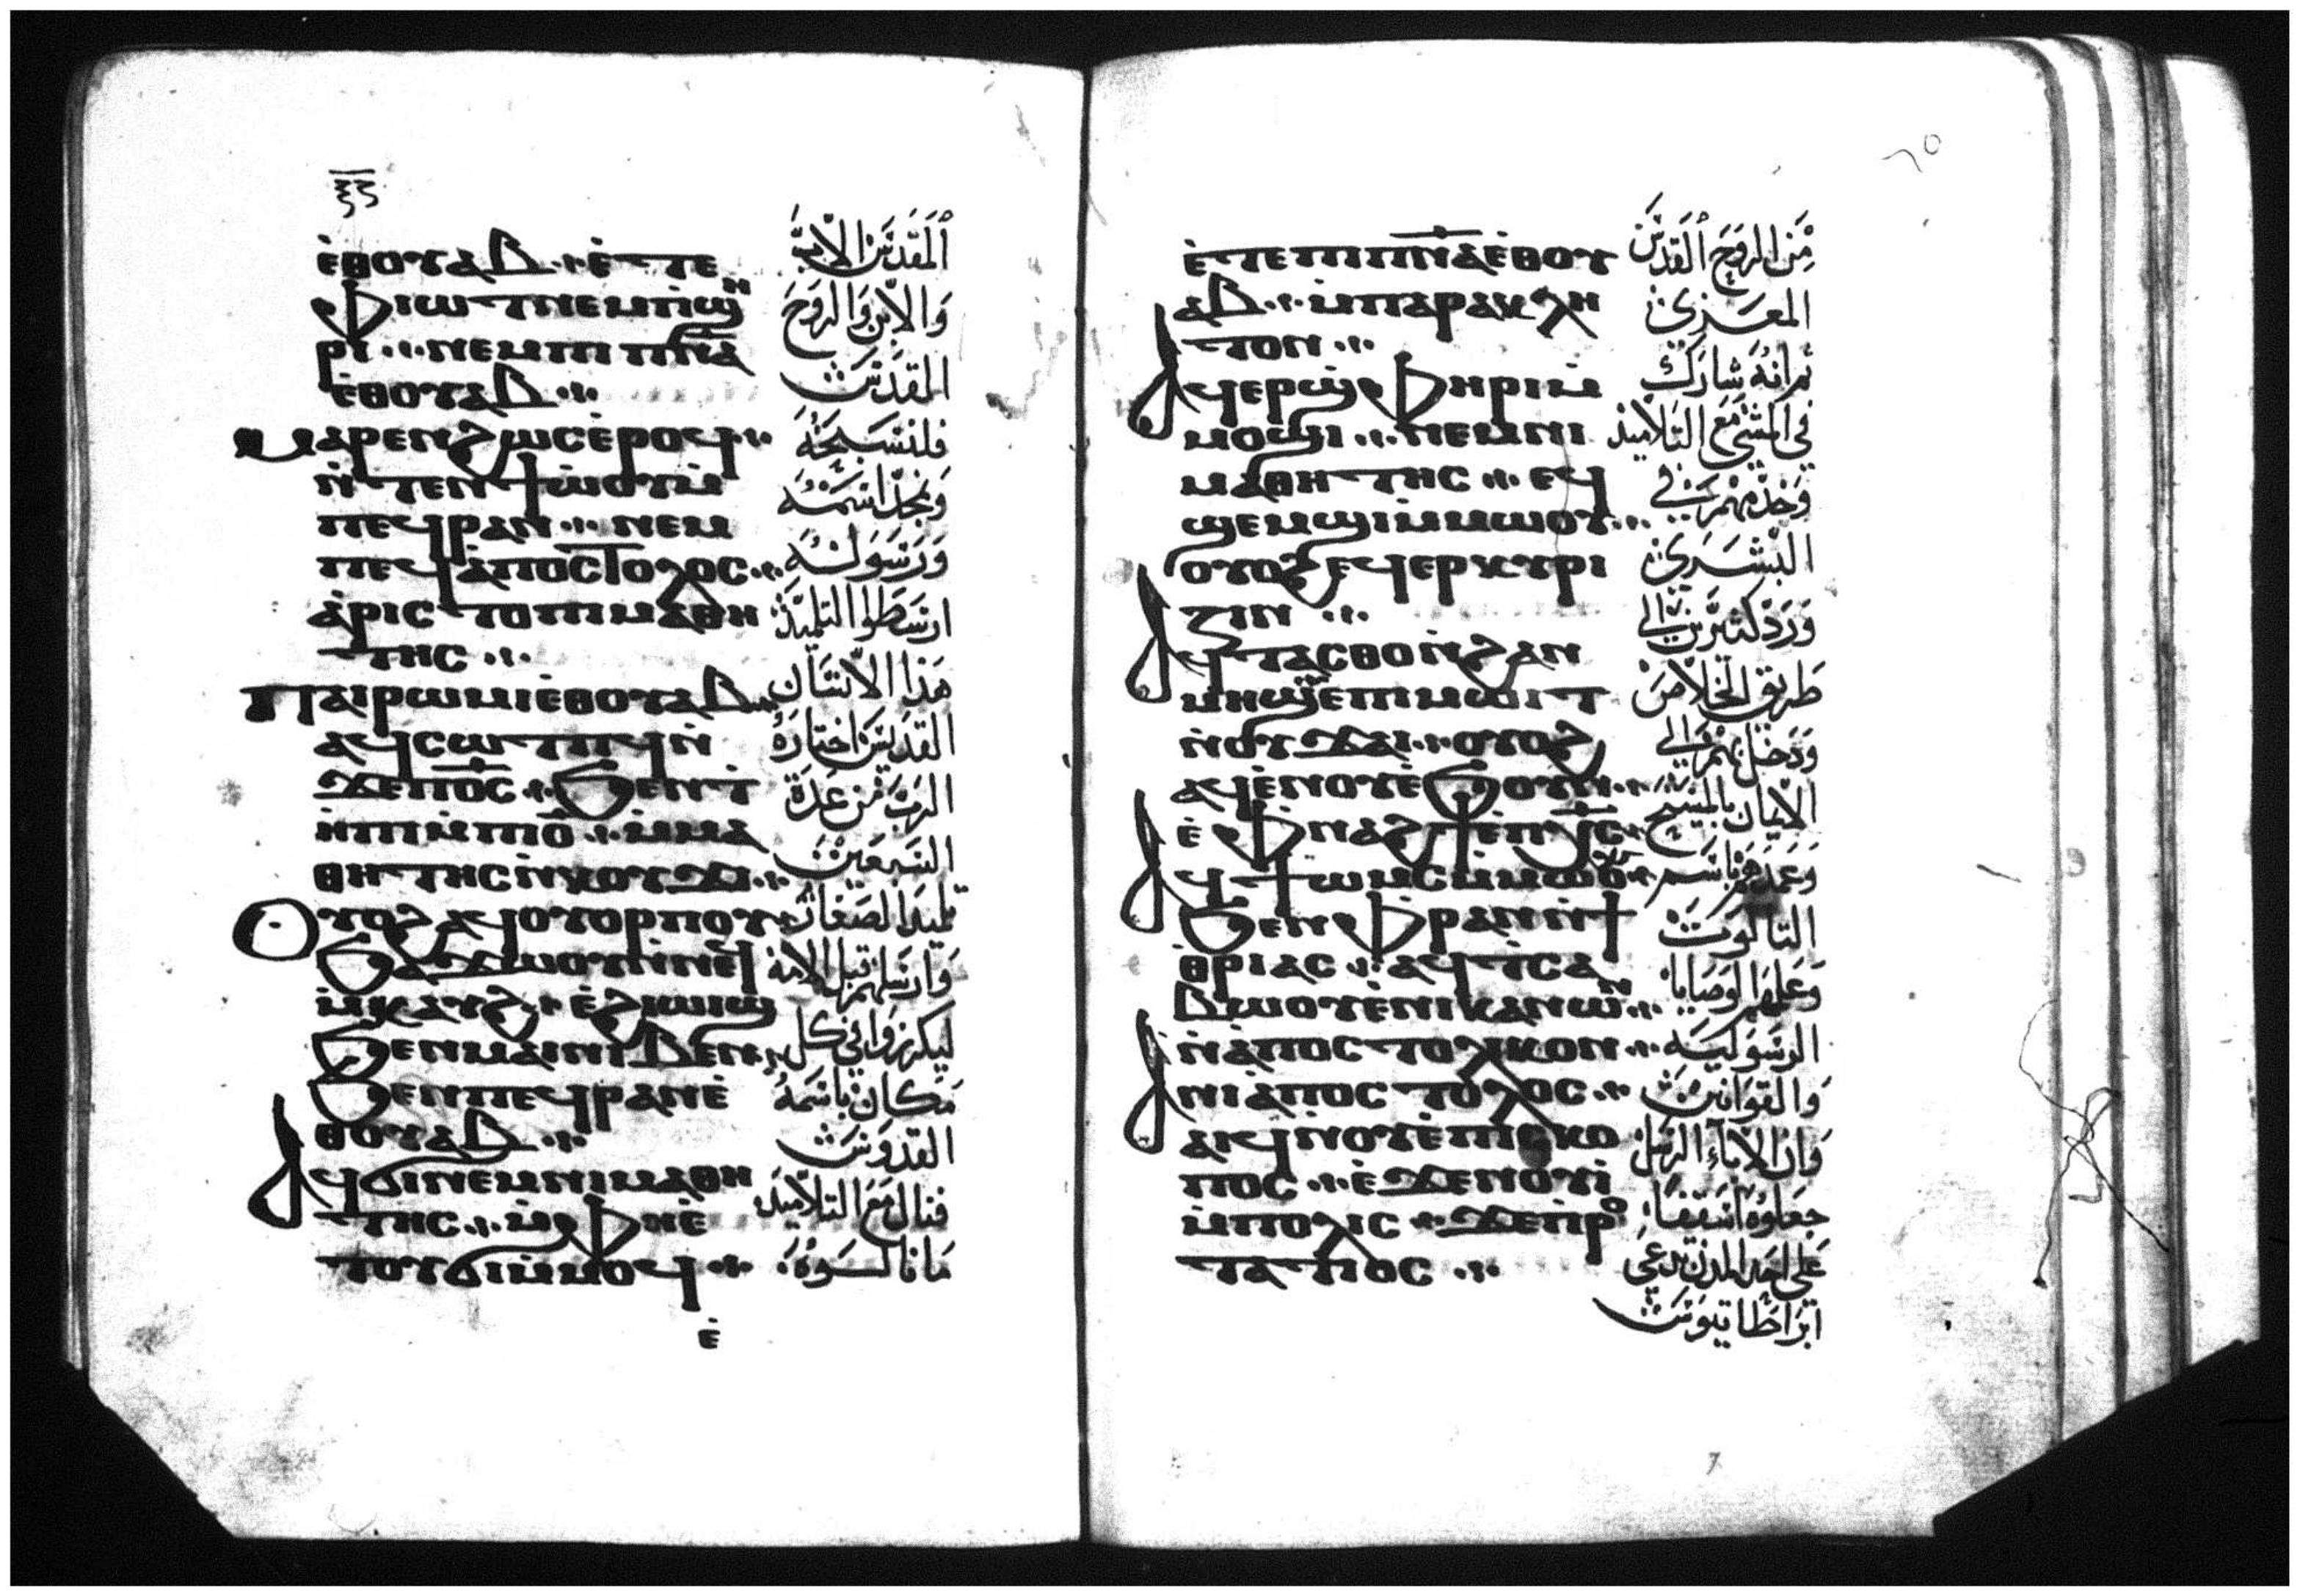 ⲉ̀ⲑⲟⲩⲁⲃ ⲉ̀ⲧⲉ
ⲫⲓⲱⲧ ⲛⲉⲙ ⲡϣⲏ
ⲣⲓ ⲛⲉⲙ ⲡⲓⲡⲛ̅ⲁ̅
ⲉ̀ⲑⲟⲩⲁⲃ
ⲙⲁⲣⲉⲛϩⲱⲥ ⲉ̀ⲣⲟϥ
ⲛ̀ⲧⲉⲛϯⲱ̀ⲟⲩ ⲙ̀
ⲡⲉϥⲣⲁⲛ ⲛⲉⲙ
ⲡⲉϥⲁ̀ⲡⲟⲥⲧⲟⲗⲟⲥ
ⲁ̀ⲣⲓⲥⲧⲟ ⲡⲓⲙⲁⲑⲏ
ⲧⲏⲥ
ⲡⲁⲓⲣⲱⲙⲓ ⲉⲑⲟⲩⲁⲃ
ⲁϥⲥⲱⲧⲡϥ ⲛ̀
ϫⲉⲡⲟ̅ⲥ̅ ϧⲉⲛ ⲧ̀
ⲏⲡⲓ ⲙ̀ⲡⲓⲟ̅ ⲙ̀ⲙⲁ
ⲑⲏⲧⲏⲥ ⲛ̀ⲕⲟⲩϫⲓ
ⲟⲩⲟϩ ⲁϥⲟⲩⲟⲣⲡⲟⲩ
ϧⲁϫⲱⲟⲩ ⲛ̀ⲛⲉϥ
ⲙ̀ⲕⲁⲩϩ ⲉ̀ϩⲓⲱⲓϣ
ϧⲉⲛ ⲙⲁⲓ ⲛⲓⲃⲉⲛ
ϧⲉⲛ ⲡⲉϥⲣⲁⲛ ⲉ̀
ⲑⲟⲩⲁⲃ
ⲁϥϭⲓ ⲛⲉⲙ ⲛⲓⲙⲁⲑⲏ
ⲧⲏⲥ ⲙ̀ⲫⲏ ⲉ̀
ⲧⲟⲩϭⲓ ⲙ̀ⲙⲟϥ
ⲉ̀
المقدس الاب
والابن والروح
المقدس
فلنسبحه
ونمجد اسمه
ورسوله
ارسطوا التلميذ
هذا الانسان
القديس اختاره
الرب من عدة
السبعين
تلميذا الصغار
وارسلهم قبل الامه
ليكرزوا في كل
مكان باسمه
القدوس
فنال مع التلاميذ
ما نالوه
ⲉ̀ⲧⲉ ⲡⲓⲡⲛ̅ⲁ̅ ⲉ̀ⲑⲟⲩ
ⲁⲃ ⲙ̀ⲡⲁⲣⲁⲕⲗⲏ
ⲧⲟⲛ
ⲁϥⲉⲣϣ̀ⲫⲏⲣⲓ ⲙ̀
ⲙⲟϣⲓ ⲛⲉⲙ ⲛⲓ
ⲙⲁⲑⲏⲧⲏⲥ ⲉϥ
ϣⲉⲙϣⲓ ⲙ̀ⲙⲱⲟⲩ
ⲟⲩⲟϩ ⲉϥⲉⲣⲕⲩⲣⲓ
ⲍⲓⲛ
ⲁϥⲧⲁⲥⲑⲟ ⲛ̀ϩⲁⲛ
ⲙⲏϣ ⲉⲡⲓⲙⲱⲓⲧ
ⲛ̀ⲟⲩϫⲁⲓ ⲟⲩⲟϩ
ⲁϥⲉ̀ⲛⲟⲩ ⲉ̀ϧⲟⲩⲛ
ⲉ̀ⲫⲛⲁϩϯ ⲉ̀ⲡⲭ̅ⲥ̅
ⲁϥϯⲱⲙⲥ ⲙ̀ⲙⲱⲟⲩ
ϧⲉⲛ ⲫⲣⲁⲛ ⲛ̀ϯ
ⲑ̀ⲣⲓⲁⲥ ⲁϥⲧ̀ⲥⲁ
ⲃⲱⲟⲩ ⲉ̀ⲛⲓⲕⲁⲛⲱⲛ
ⲛ̀ⲁ̀ⲡⲟⲥⲧⲟⲗⲓⲕⲟⲛ
ⲁⲛⲓⲁ̀ⲡⲟⲥⲧⲟⲗⲟⲥ
ⲁⲓϥ ⲛ̀ⲟⲩⲉ̀ⲡⲓⲥⲕⲟ
ⲡⲟⲥ ⲉ̀ϫⲉⲛ ⲟⲩⲓ̀
ⲙ̀ⲡⲟⲗⲓⲥ ϫⲉ ⲡ̀ⲣⲟ
ⲧⲁⲧⲓⲟⲥ
من الروح القدس
المعزي
ثم انه شارك
في المشي مع التلاميذ
وخدمهم في
البشرى
ورد كثيرين الى
طريق الخلاص
ودخل بهم الى
الايمان بالمسيح
وعمدهم باسم
الثالوث
وعلمهم الوصايا
الرسوليه
والقوانين
وان الاباء الرسل
جعلوه اسقفا
على احد المدن تدعى
ابراطاتيوس